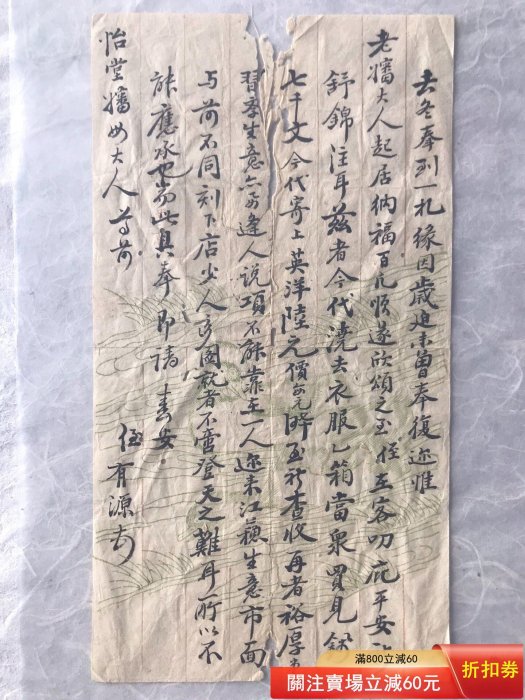 去冬奉到一札緣因歲迫未曾奉復邇惟
老嬸大人起居納福百凡順遂欣頌之至侄在客叨庇平安
舒錦注耳茲者今代澆去衣服乙箱當衆買見
七千文今代寄上英洋陸元價每元 至祈查收再者裕厚
習學生意亦可逢人說項不能靠在一人邇來江蘇生意市面
与前不同刻下店少人多閑寂者不啻登天之難耳所以不
能應承也 此具奉即請 安
怡堂嬸母大人尊前 侄有源
滿800立減60
關注賣場立減60元
折扣券